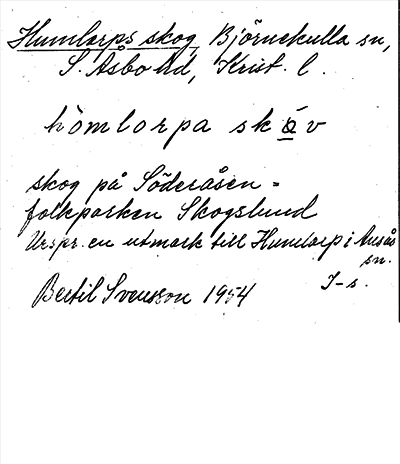 Humlarps skog, Björnekulla sn,
S. Åsbo hd, Krist. l.
hòmlorpa skǫv
skog på Söderåsen =
folkparken Skogslund
Urspr. en utmark till Humlarp i Ausås
sn.
I-s.
Bertil Svensson 1954